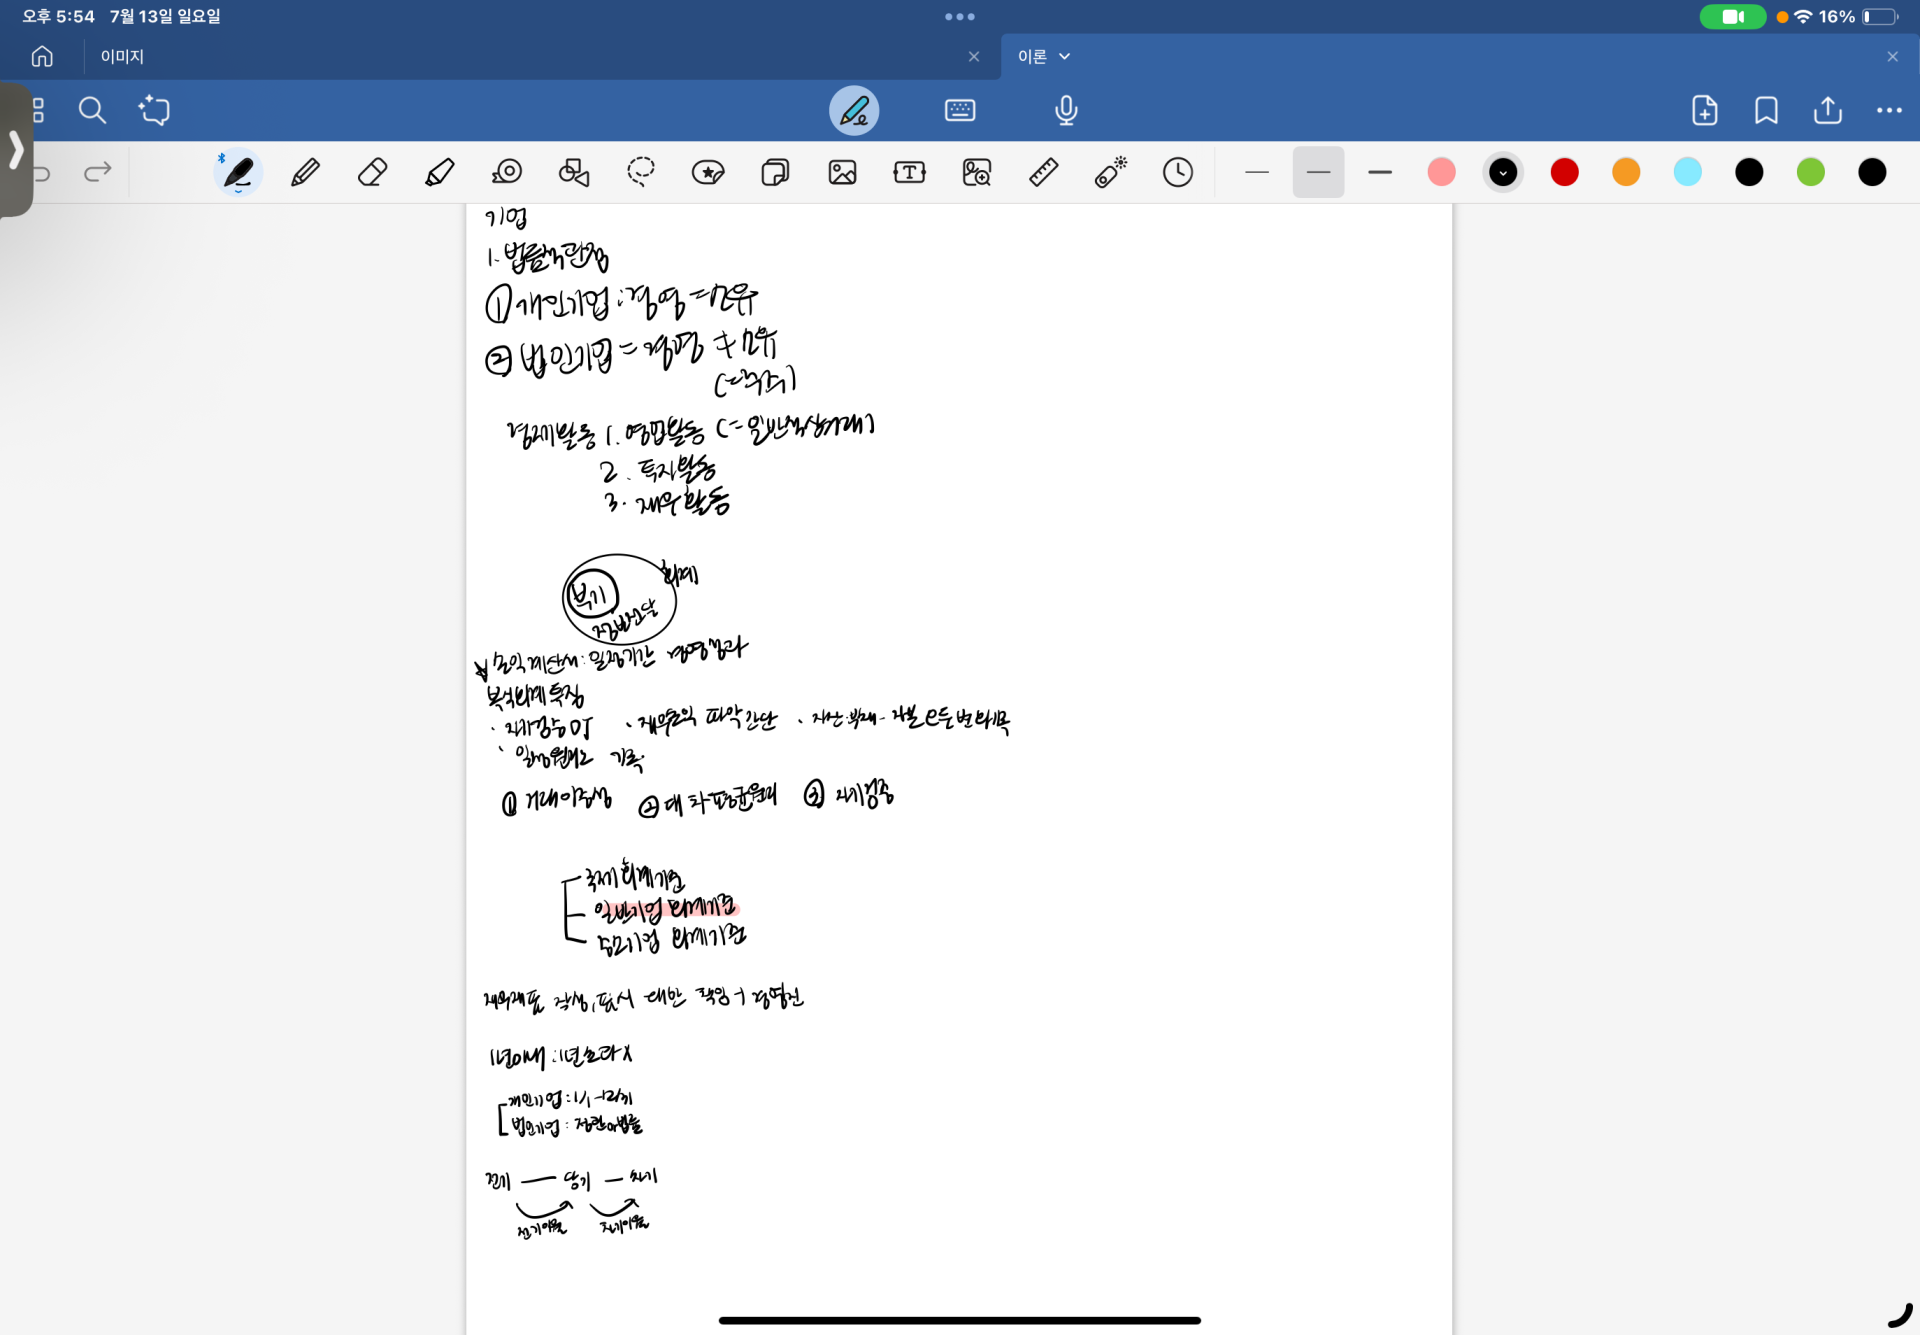 오후 5:54 7월 13일 일요일
16%
이미지
이론
기업
1. 법률적관점
① 개인기업 : 경영 = 소유
② 법인기업 = 경영 ≠ 소유
(=주주)
경제활동 1. 영업활동 (= 일반적상거래)
2. 투자활동
3. 재무활동
회계
부기
정보전달
손익계산서 : 일정기간 경영성과
복식회계특징
· 자가검증 · 재무손익 파악 간단 · 자산·부채·자본
· 일정원리로 기록
① 거래이중성 ② 대차평균원리 ③ 자기검증
국제회계기준
일반기업 회계기준
중소기업 회계기준
재무제표 작성, 표시 대한 책임 → 경영진
1년이내 : 1년초과X
개인기업 : 1/1 ~ 12/31
법인기업 : 정관or법률
전기 — 당기 — 차기
전기이월 차기이월